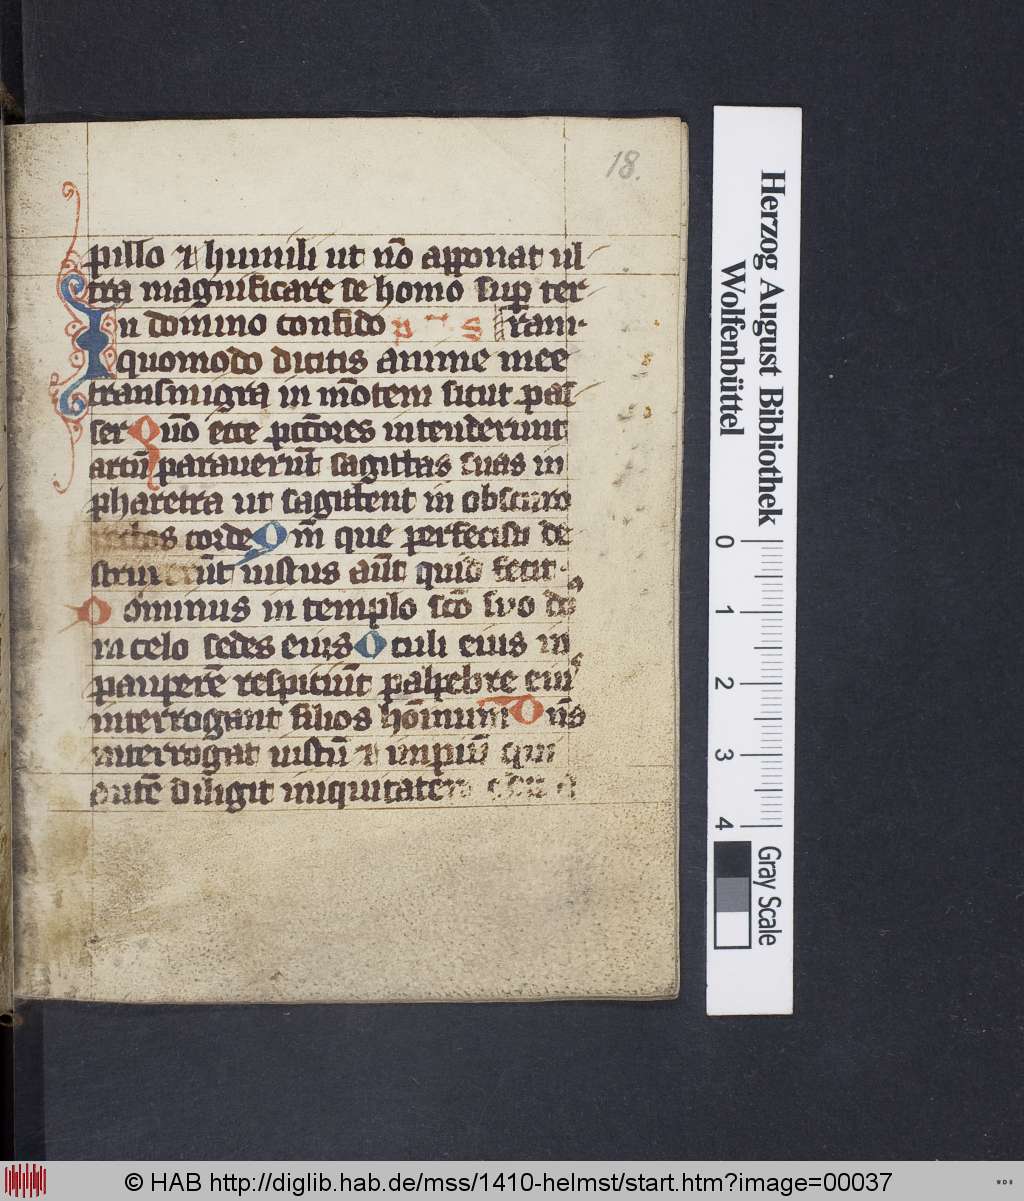 18.
pillo ⁊ humili ut nō apponat ul
tra magnificare se homo sup ter
In domino confido p s ram
quomodo dicitis anime mee
transmigra in mōtem sicut pas
ser Quō ecce pcc̄ores intenderunt
artū parauerūt sagittas suas in
pharetra ut sagittent in obscuro
rectos corde Qm̄ que perfecisti de
struxerūt iustus aūt quid fecit
Dominus in templo scō suo do
in celo sedes eius Oculi eius in
pauperē respiciūt palpebre eiꝰ
interrogant filios hōinum Dn̄s
interrogat iustū ⁊ impiū qui
autē diligit iniquitatem
Herzog August Bibliothek
Wolfenbüttel
0 1 2 3 4
Gray Scale
© HAB http://diglib.hab.de/mss/1410-helmst/start.htm?image=00037